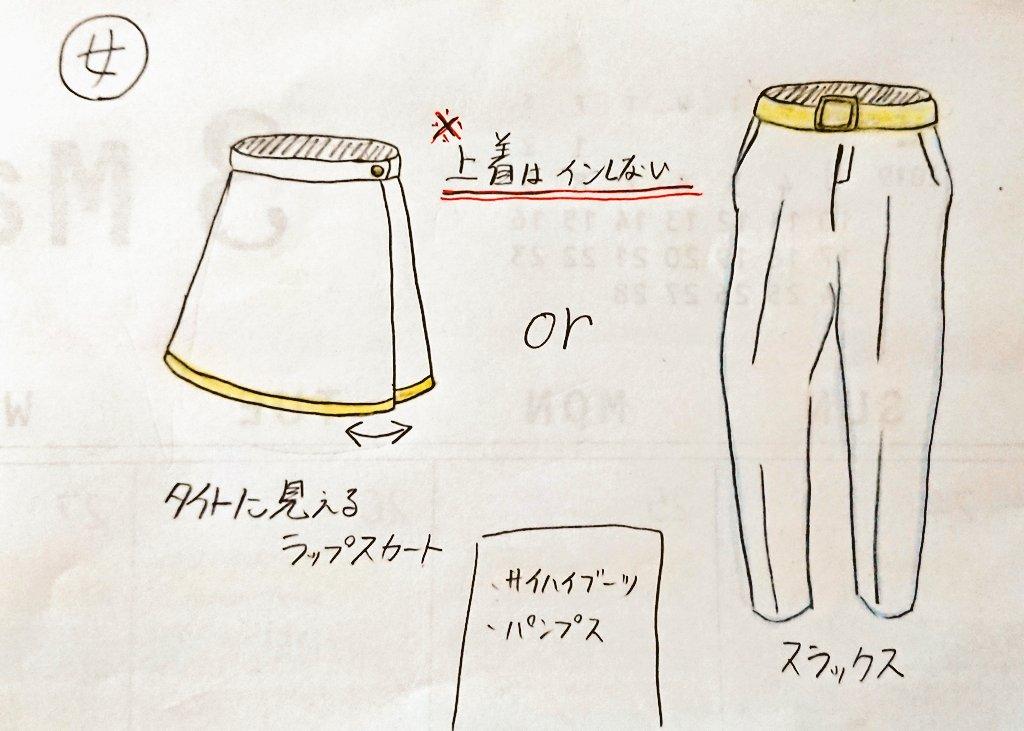 女
※
上着はインしない
or
タイトに見える
ラップスカート
・サイハイブーツ
・パンプス
スラックス